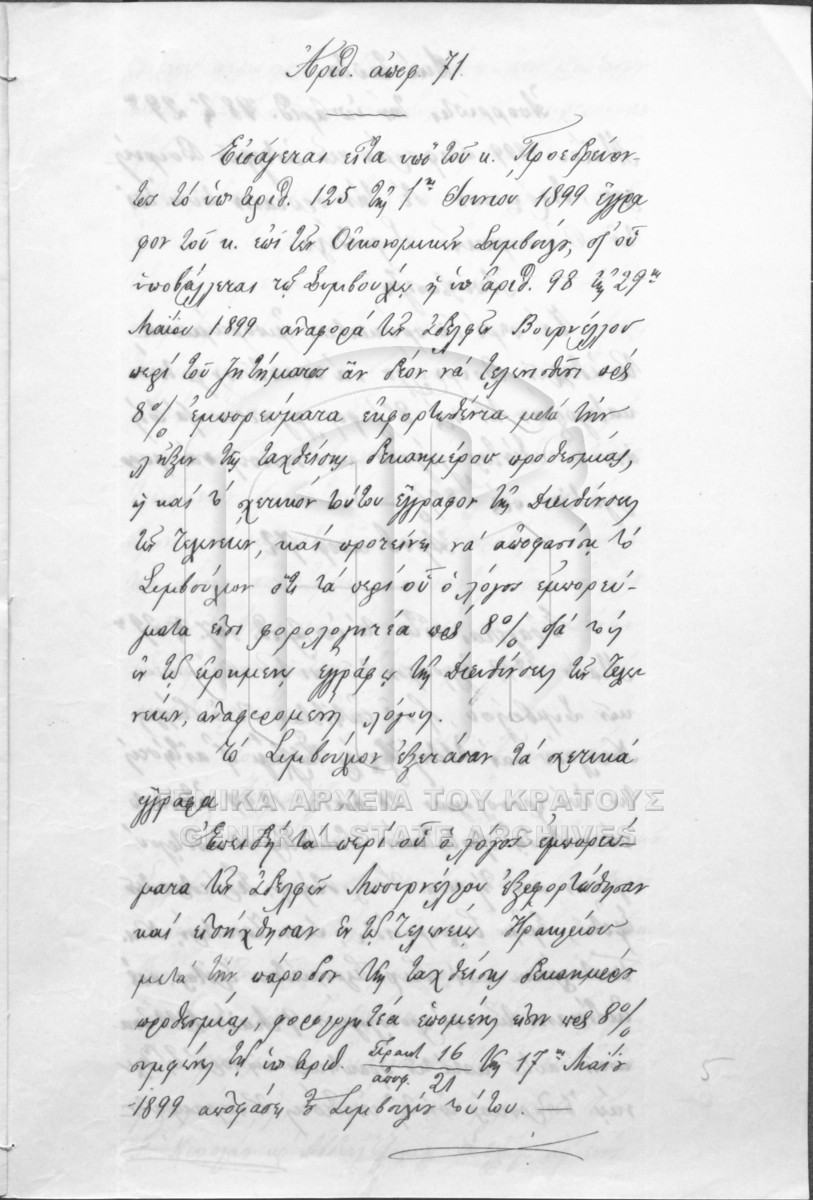 Ἀριθ. ἀποφ. 71.
Εἰσάγεται εἶτα ὑπὸ τοῦ κ. Προεδρεύον-
τος τὸ ὑπ' ἀριθ. 125 τῆς 1ης Ἰουνίου 1899 ἔγγρα
φον τοῦ κ. ἐπὶ τῶν Οἰκονομικῶν Συμβούλου, δι' οὗ
ὑποβάλλεται τῷ Συμβουλίῳ ἡ ὑπ' ἀριθ. 98 τῆς 29ης
Μαΐου 1899 ἀναφορὰ τῶν ἀδελφῶν Βουρνέλλου
περὶ τοῦ ζητήματος ἂν δέον νὰ τελωνισθῶσι πρὸς
8% ἐμπορεύματα ἐκφορτωθέντα μετὰ τὴν
λῆξιν τῆς ταχθείσης δεκαημέρου προθεσμίας,
ἢ καὶ τὸ σχετικὸν τούτου ἔγγραφον τῆς Διευθύνσεως
τῶν Τελωνείων, καὶ προτείνει νὰ ἀποφασίσῃ τὸ
Συμβούλιον ὅτι τὰ περὶ οὗ ὁ λόγος ἐμπορεύ-
ματα εἰσὶ φορολογητέα πρὸς 8% διὰ τοὺς
ἐν τῷ εἰρημένῳ ἐγγράφῳ τῆς Διευθύνσεως τῶν Τελω
νείων, ἀναφερομένους λόγους.
Τὸ Συμβούλιον ἐξετάσαν τὰ σχετικὰ
ἔγγραφα
ΓΕΝΙΚΑ ΑΡΧΕΙΑ ΤΟΥ ΚΡΑΤΟΥΣ
GENERAL STATE ARCHIVES
Ἐπειδὴ τὰ περὶ οὗ ὁ λόγος ἐμπορεύ-
ματα τῶν ἀδελφῶν Μπουρνέλλου ἐξεφορτώθησαν
καὶ εἰσήχθησαν ἐν τῷ Τελωνείῳ Ἡρακλείου
μετὰ τὴν πάροδον τῆς ταχθείσης δεκαημέρου
προθεσμίας, φορολογητέα ἑπομένως εἰσὶν πρὸς 8%
συμφώνως τῇ ὑπ' ἀριθ. Πρακτ. 16 / ἀποφ. 21 τῆς 17ης Μαΐου
1899 ἀποφάσει τοῦ Συμβουλίου τούτου. —
5